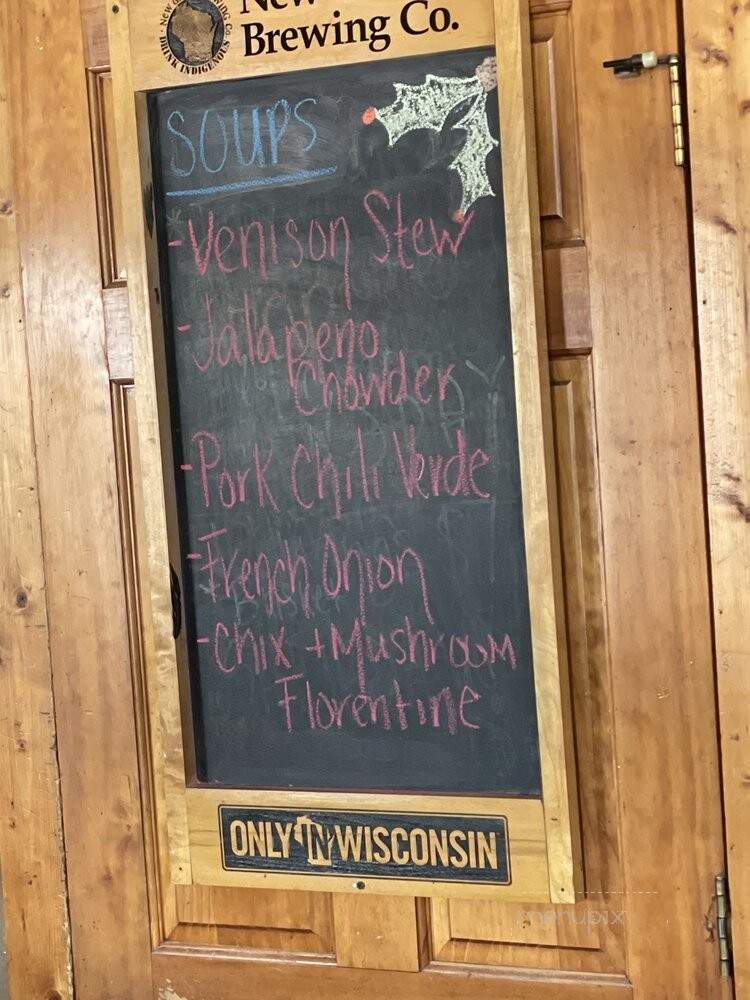 New
Brewing Co.
DRINK INDIGENOUS
SOUPS
- Venison Stew
- Jalapeno
Chowder
- Pork Chili Verde
- French Onion
- Chix + Mushroom
Florentine
ONLY IN WISCONSIN
menupix